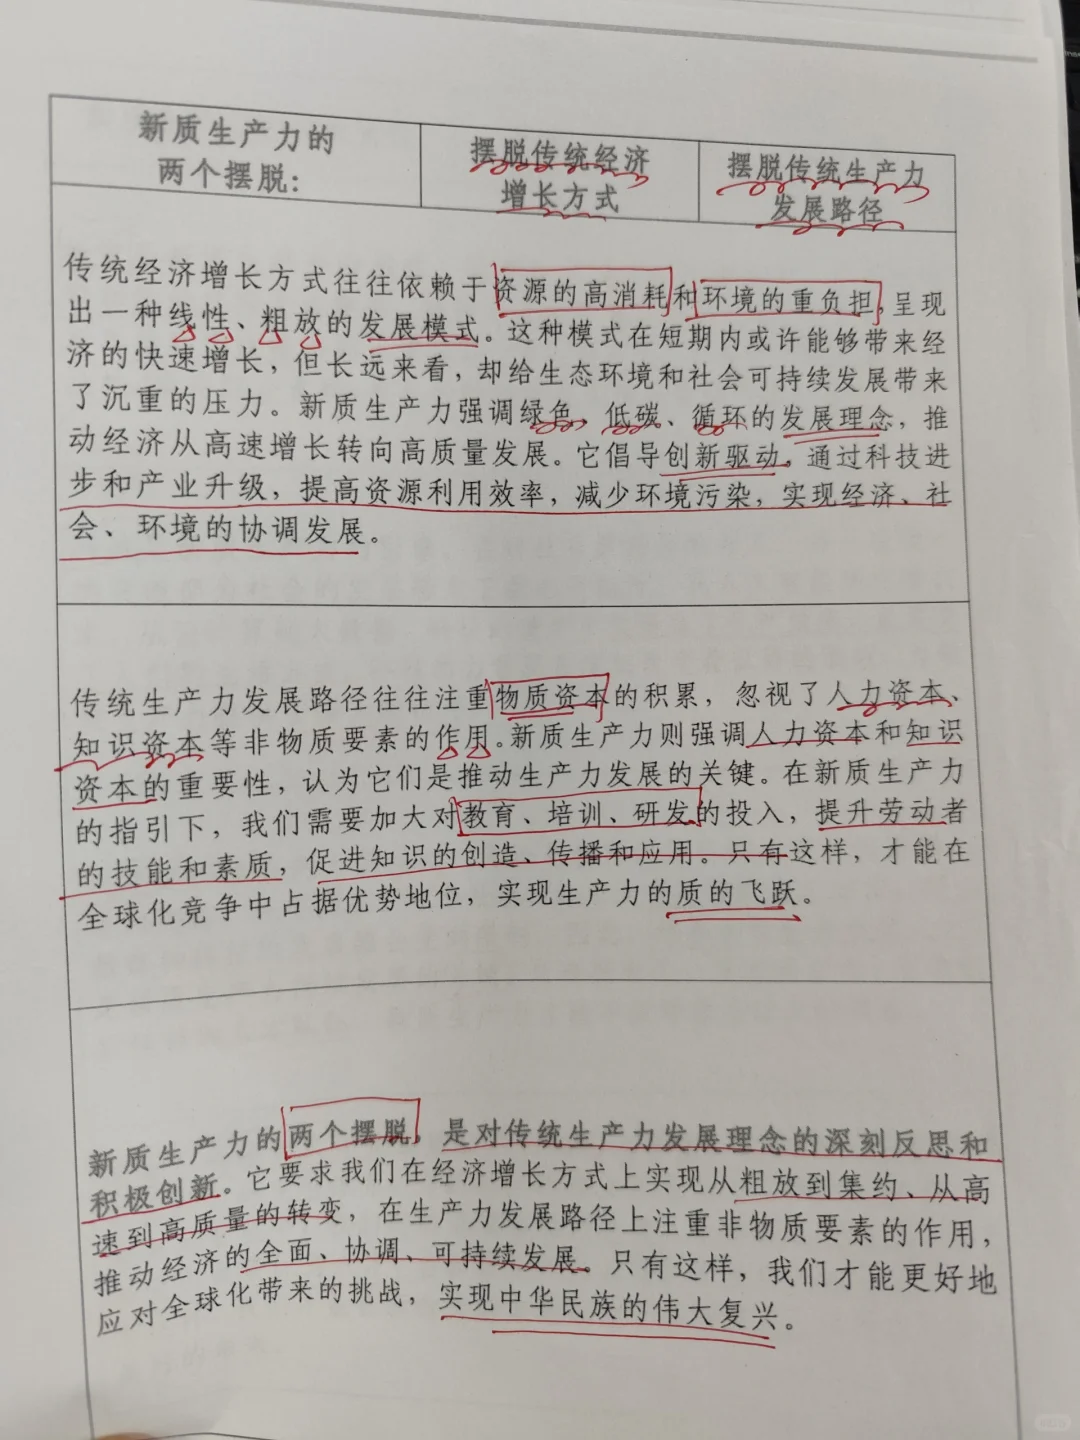 新质生产力的
两个摆脱：
摆脱传统经济
增长方式
摆脱传统生产力
发展路径
传统经济增长方式往往依赖于资源的高消耗和环境的重负担，呈现
出一种线性、粗放的发展模式。这种模式在短期内或许能够带来经
济的快速增长，但长远来看，却给生态环境和社会可持续发展带来
了沉重的压力。新质生产力强调绿色、低碳、循环的发展理念，推
动经济从高速增长转向高质量发展。它倡导创新驱动，通过科技进
步和产业升级，提高资源利用效率，减少环境污染，实现经济、社
会、环境的协调发展。
传统生产力发展路径往往注重物质资本的积累，忽视了人力资本、
知识资本等非物质要素的作用。新质生产力则强调人力资本和知识
资本的重要性，认为它们是推动生产力发展的关键。在新质生产力
的指引下，我们需要加大对教育、培训、研发的投入，提升劳动者
的技能和素质，促进知识的创造、传播和应用。只有这样，才能在
全球化竞争中占据优势地位，实现生产力的质的飞跃。
新质生产力的两个摆脱，是对传统生产力发展理念的深刻反思和
积极创新。它要求我们在经济增长方式上实现从粗放到集约、从高
速到高质量的转变，在生产力发展路径上注重非物质要素的作用，
推动经济的全面、协调、可持续发展。只有这样，我们才能更好地
应对全球化带来的挑战，实现中华民族的伟大复兴。